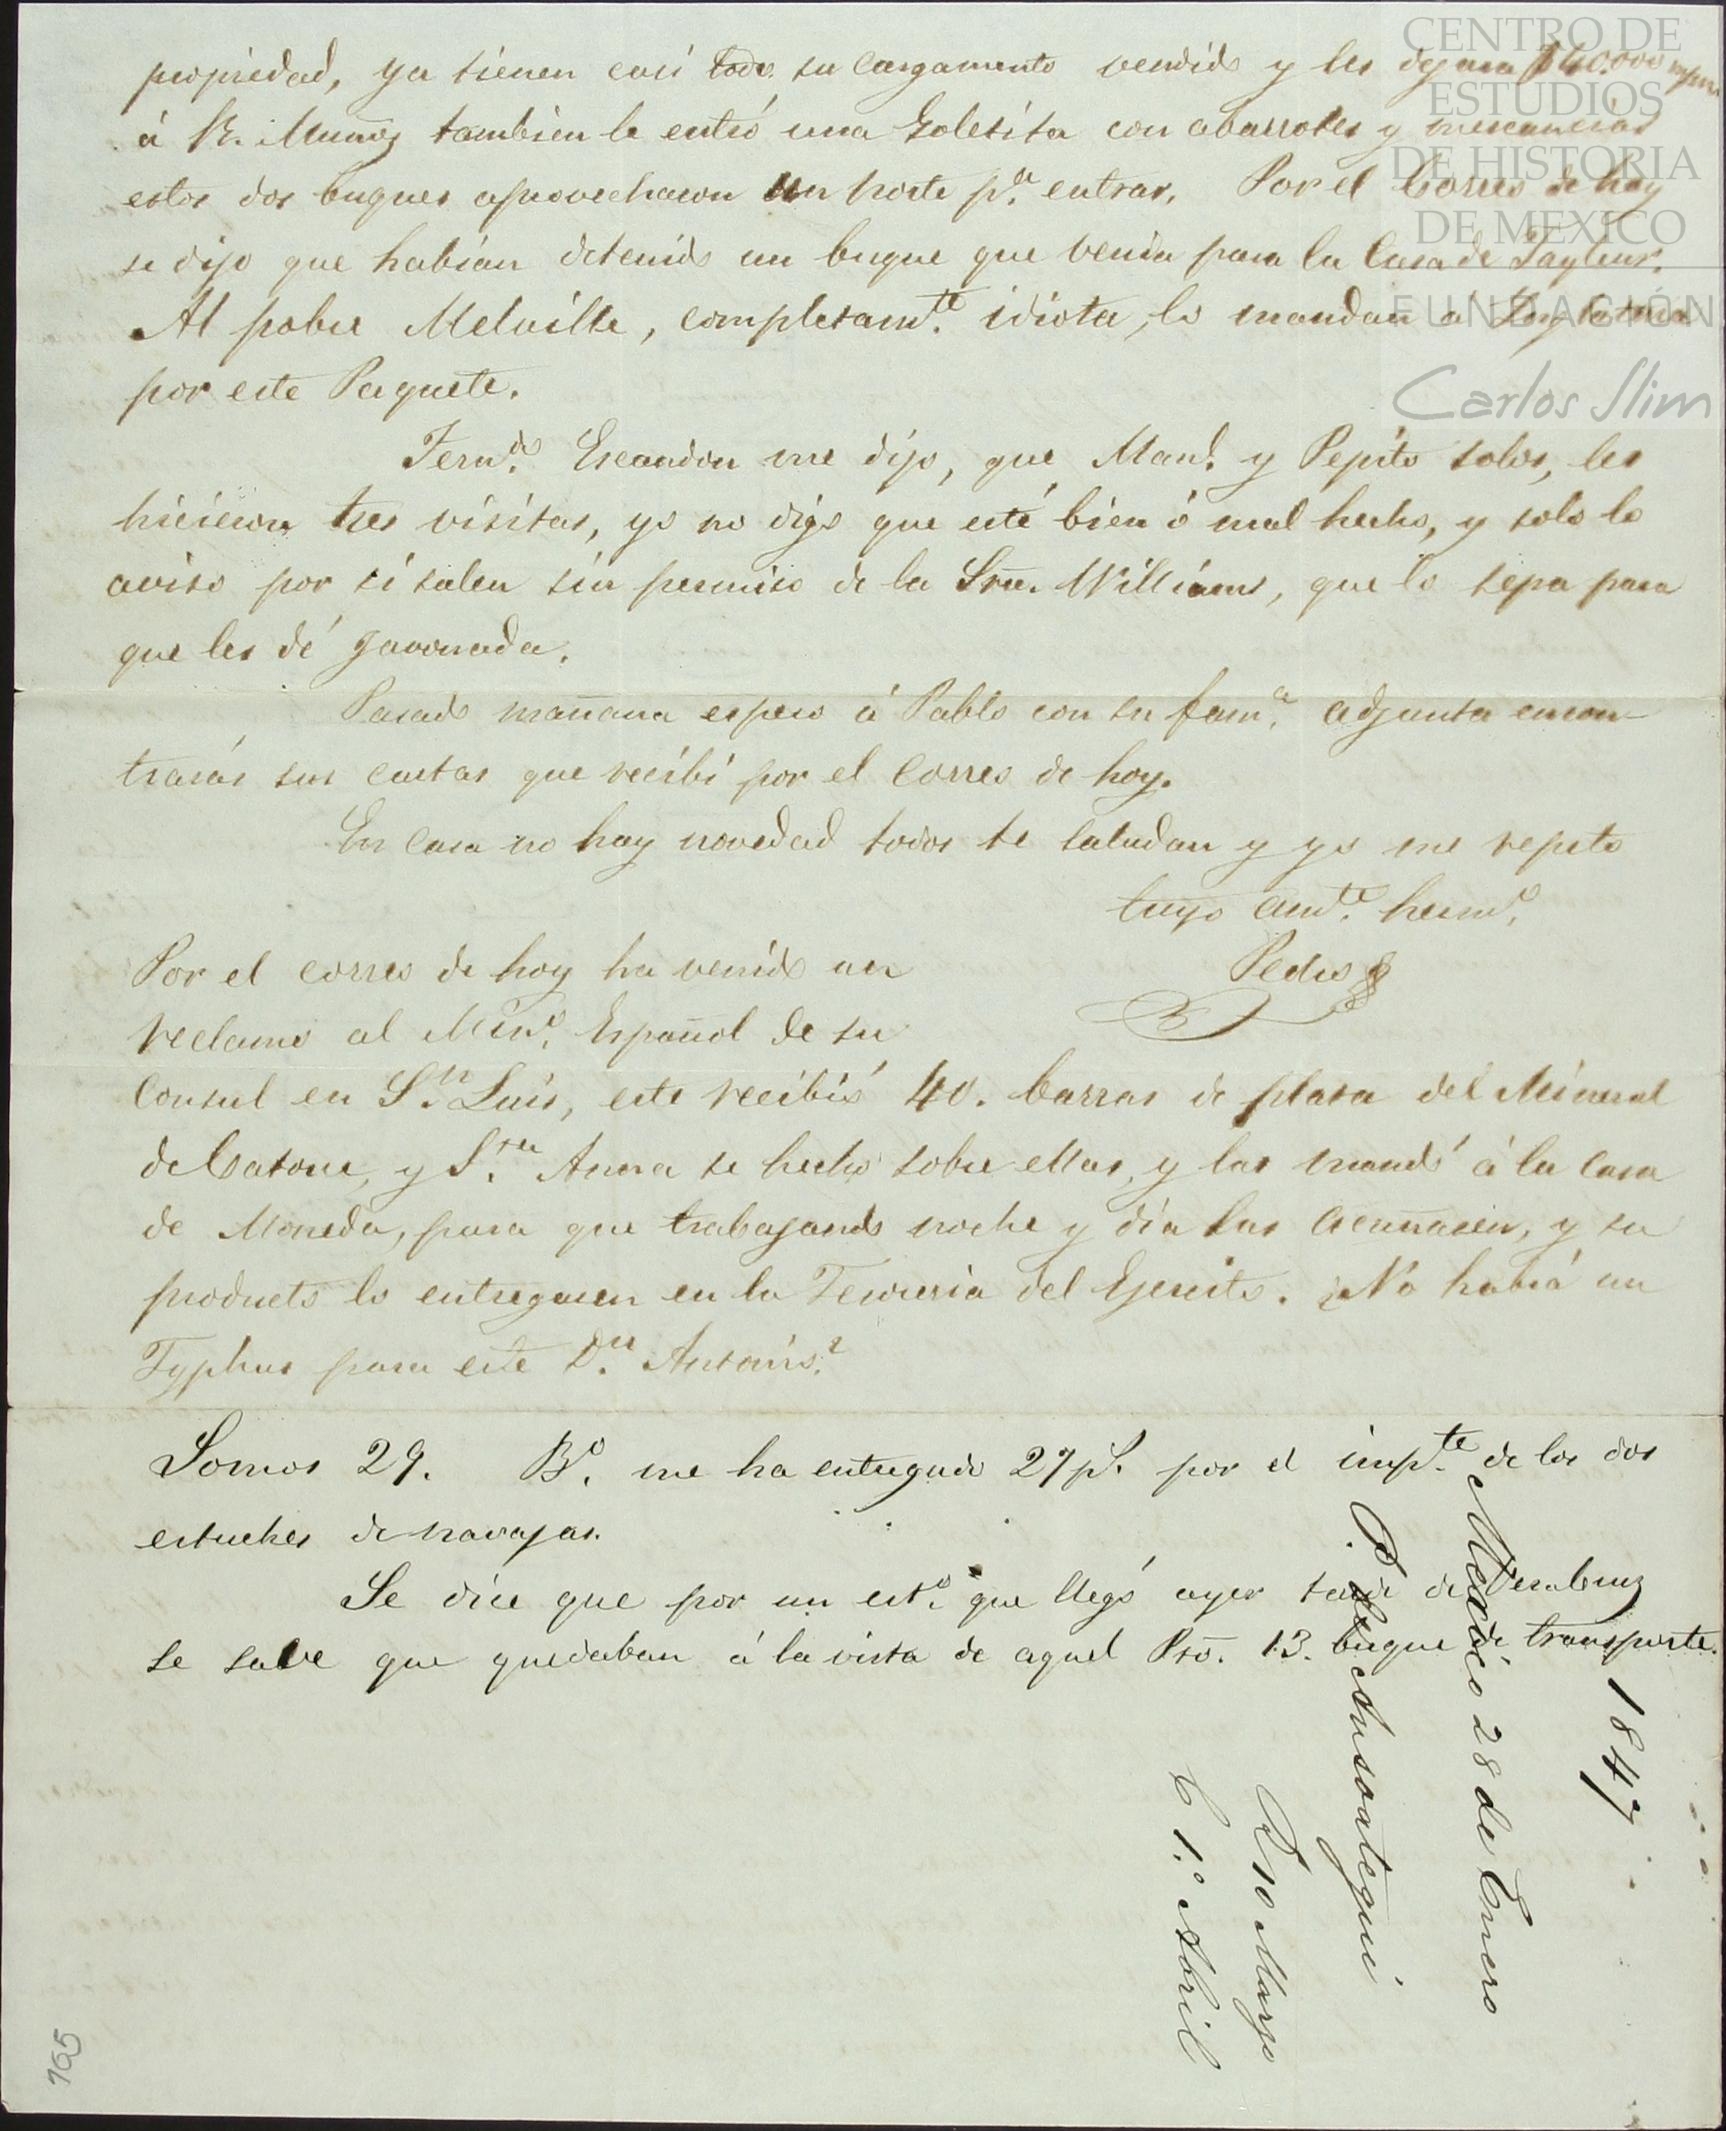 propriedad, ya tienen casi todo su cargamento vendido y les dejara $40.000
á R. Muñoz tambien le entró una Goletita con abarrotes y mercancias
estos dos buques aprovecharon un norte p.ª entrar. Por el Correo de hoy
se dijo que habian detenido un buque que venia para la Casa de Tayleur.
Al pobre Melville, completam.te idiota, lo mandan á Inglaterra
por este Paquete.
Fern.do Escandon me dijo, que Man.l y Pepito solos, les
hicieron tres visitas, yo no digo que esté bien ó mal hecho, y solo lo
aviso por si salen sin permiso de la Sra. Williams, que lo sepa para
que les dé javonada.
Pasado mañana espero á Pablo con su fam.ª adjunta encon-
trarás sus cartas que recibi por el correo de hoy.
En casa no hay novedad todos te saludan y yo me repito
tuyo am.te herm.o
Pedro
Por el correo de hoy ha venido un
reclamo al Min.o Español de su
Consul en S.n Luis, este recibió 40. barras de plata del Mineral
de Catorce, y S.ta Anna se hechó sobre ellas, y las mandó á la Casa
de Moneda, para que trabajando noche y dia las acuñasen, y su
producto lo entreguen en la Tesoreria del Ejercito. ¿No habrá un
Typhus para este D.n Antonio?
Somos 29. B.o me ha entregado 27 p.s por el imp.te de los dos
estuches de navajas.
Se dice que por un est.o que llegó ayer tarde de Vera Cruz
se sabe que quedaban á la vista de aquel Pto. 13. buque de transporte.
1847
Mexico 28 de Enero
P. Ansoategui
R 10 Marzo
C 1.o Abril
165
CENTRO DE
ESTUDIOS
DE HISTORIA
DE MEXICO
FUNDACIÓN
Carlos Slim